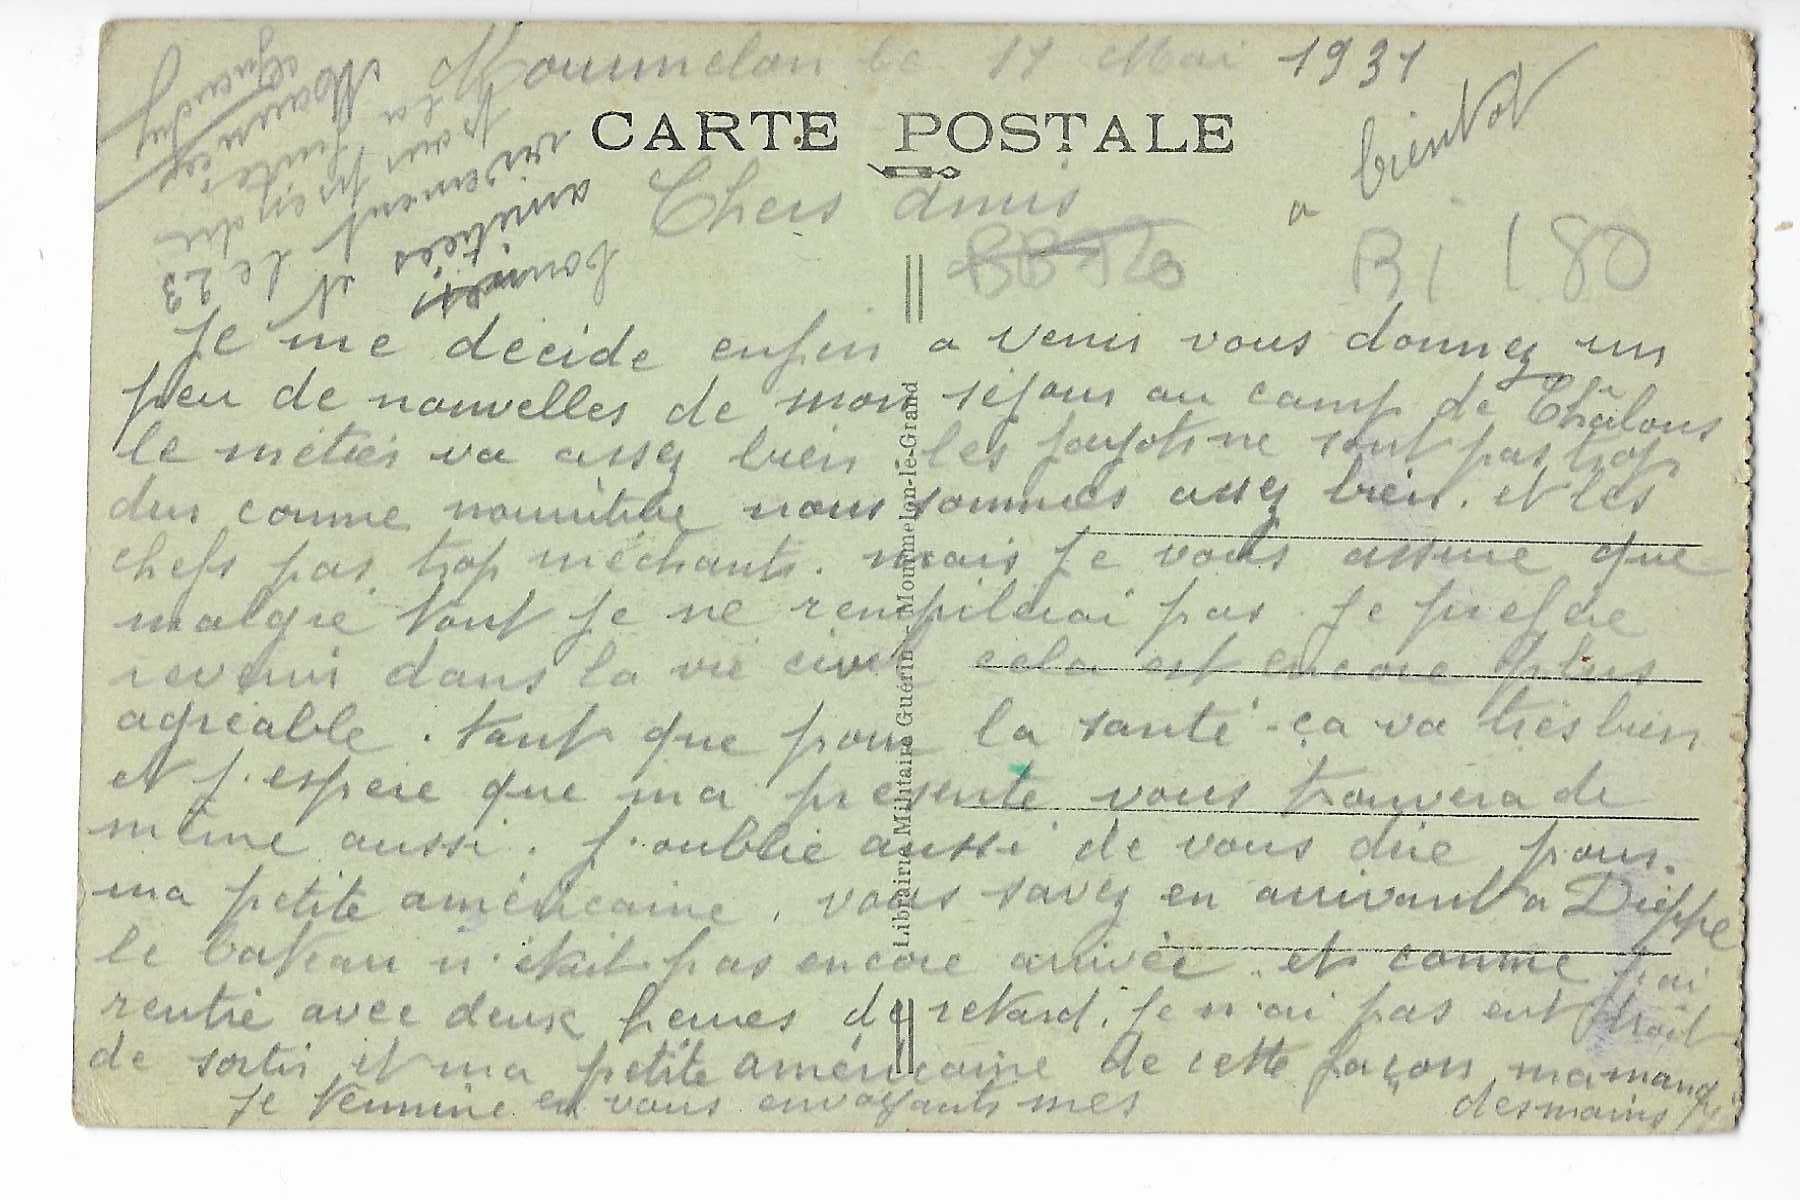 Mourmelon le 11 Mai 1931
CARTE POSTALE
a bientot
Chers amis
BB 520
B1 180
Je me decide enfin a venir vous donnez un
peu de nouvelles de mon séjour au camp de Châlons
le métier va assez bien les fayots ne sont pas trop
dur comme nourriture nous sommes assez bien. et les
chefs pas trop méchants. mais je vous assure que
malgré tout je ne rempilerai pas. Je prefere
revenir dans la vie civil cela est encore plus
agréable. tant que pour la santé ça va très bien
et j'espère que ma présente vous trouvera de
même aussi. j'oublie aussi de vous dire pour
ma petite américaine, vous savez en arrivant a Dieppe
le bateau n'était pas encore arrivée et comme j'ai
rentré avec deux heures de retard. je n'ai pas eut droit
de sortir et ma petite américaine de cette façon ma manqué
des mains
je termine en vous envoyants mes
bonnes
amitiés et
vivement le 23
pour prendre
la
Librairie Militaire Guérin - Mourmelon-le-Grand